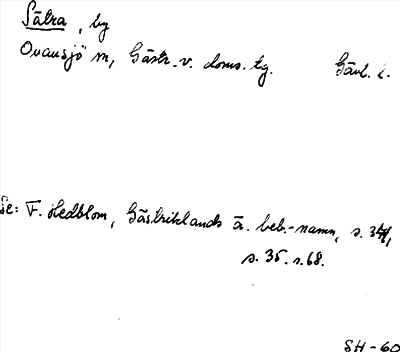 Sätra, by
Ovansjö sn, Gästr. v. doms. tg. Gävl. l.
Se: F. Hedblom, Gästriklands ä. beb.-namn, s. 34,
s. 35. s. 68.
SH-60